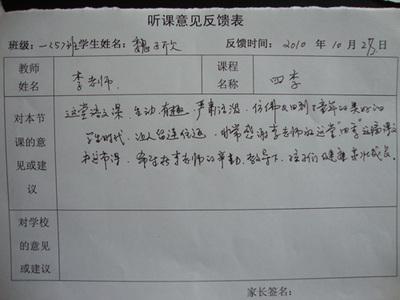 听课意见反馈表
班级:一(35)班 学生姓名: 魏 欣 反馈时间: 2010 年 10 月 27 日
教师姓名 李老师. 课程名称 四季
对本节课的意见或建议
这堂语文课 生动有趣,严肃活泼,仿佛又回到了童年的美好的
时代,让人留连 . 非常感谢李老师的这堂"四季"这篇课文
希望在李老师的辛勤教导下,孩子们健康茁壮成长.
对学校的意见或建议
家长签名: